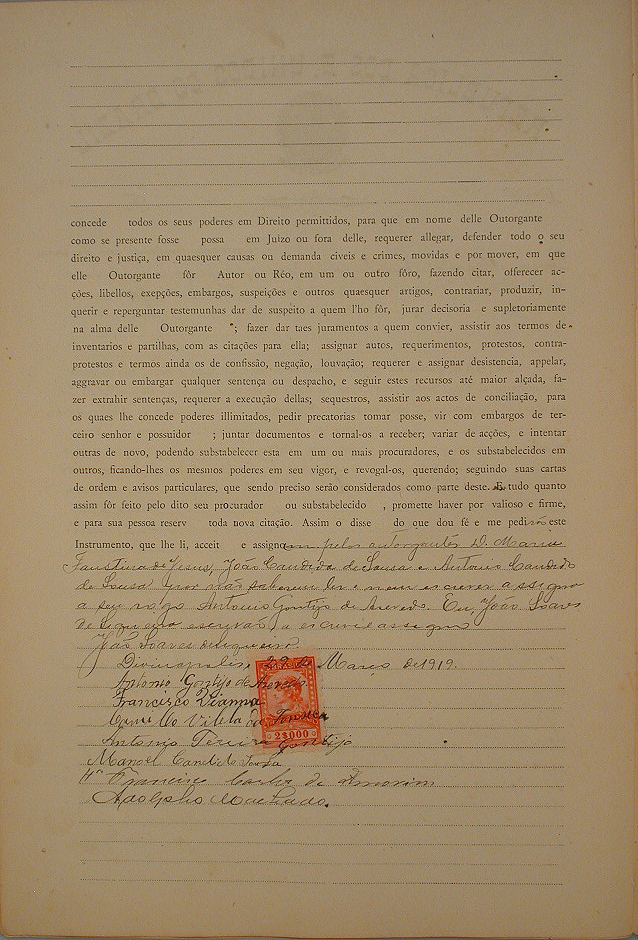 concede todos os seus poderes em Direito permittidos, para que em nome delle Outorgante
como se presente fosse possa em Juizo ou fora delle, requerer allegar, defender todo o seu
direito e justiça, em quaesquer causas ou demanda civeis e crimes, movidas e por mover, em que
elle Outorgante fôr Autor ou Réo, em um ou outro fôro, fazendo citar, offerecer ac-
ções, libellos, exepções, embargos, suspeições e outros quaesquer artigos, contrariar, produzir, in-
querir e reperguntar testemunhas dar de suspeito a quem l'ho fôr, jurar decisoria e supletoriamente
na alma delle Outorgante ; fazer dar taes juramentos a quem convier, assistir aos termos de
inventarios e partilhas, com as citações para ella; assignar autos, requerimentos, protestos, contra-
protestos e termos ainda os de confissão, negação, louvação; requerer e assignar desistencia, appelar,
aggravar ou embargar qualquer sentença ou despacho, e seguir estes recursos até maior alçada, fa-
zer extrahir sentenças, requerer a execução dellas; sequestros, assistir aos actos de conciliação, para
os quaes lhe concede poderes illimitados, pedir precatorias tomar posse, vir com embargos de ter-
ceiro senhor e possuidor ; juntar documentos e tornal-os a receber; variar de acções, e intentar
outras de novo, podendo substabelecer esta em um ou mais procuradores, e os substabelecidos em
outros, ficando-lhes os mesmos poderes em seu vigor, e revogal-os, querendo; seguindo suas cartas
de ordem e avisos particulares, que sendo preciso serão considerados como parte deste. E tudo quanto
assim fôr feito pelo dito seu procurador ou substabelecido , promette haver por valioso e firme,
e para sua pessoa reserv toda nova citação. Assim o disse do que dou fé e me pedirão este
Instrumento, que lhe li, acceit e assignam pelos outorgantes D. Maria
Faustina de Jesus, João Candido de Sousa e Antonio Candido
de Sousa por não saberem ler e nem escrever a assigno
a seu rogo Antonio Gontijo de Azevedo. Eu, João Soares
de Siqueira escrivão, a escrevi e assigno
João Soares de Siqueira
Divinopolis, 22 de Março de 1919.
Antonio Gontijo de Azevedo
Francisco Vianna
Vilela da Fonseca
2$000
Antonio Pereira Gontijo
Manoel Candido
Francisco Carlos de Amorim
Adolpho Machado.